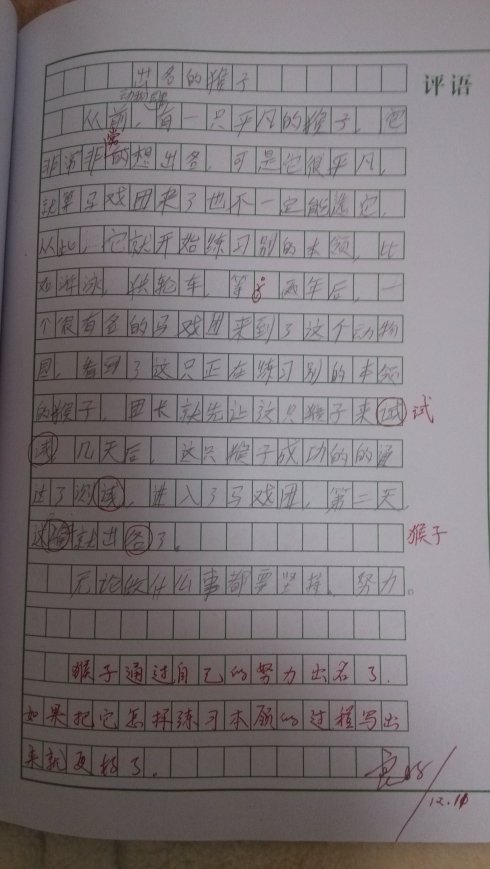 评语
出名的猴子
动物园
从前,有一只平凡的猴子,它
常
非常非的想出名,可是它很平凡,
就算马戏团来了也不一定能选它,
从此,它就开始练习别的本领,比
如游泳,铁轮车,等。两年后,一
个很有名的马戏团来到了这个动物
园,看到了这只正在练习别的本领
的猴子,团长就先让这只猴子来试 试
试,几天后,这只猴子成功的的通
过了测试,进入了马戏团,第二天,
这 就出名了。 猴子
无论做什么事都要坚持。努力。
猴子通过自己的努力出名了.
如果把它怎样练习本领的过程写出
来就更棒了。
良好
12.